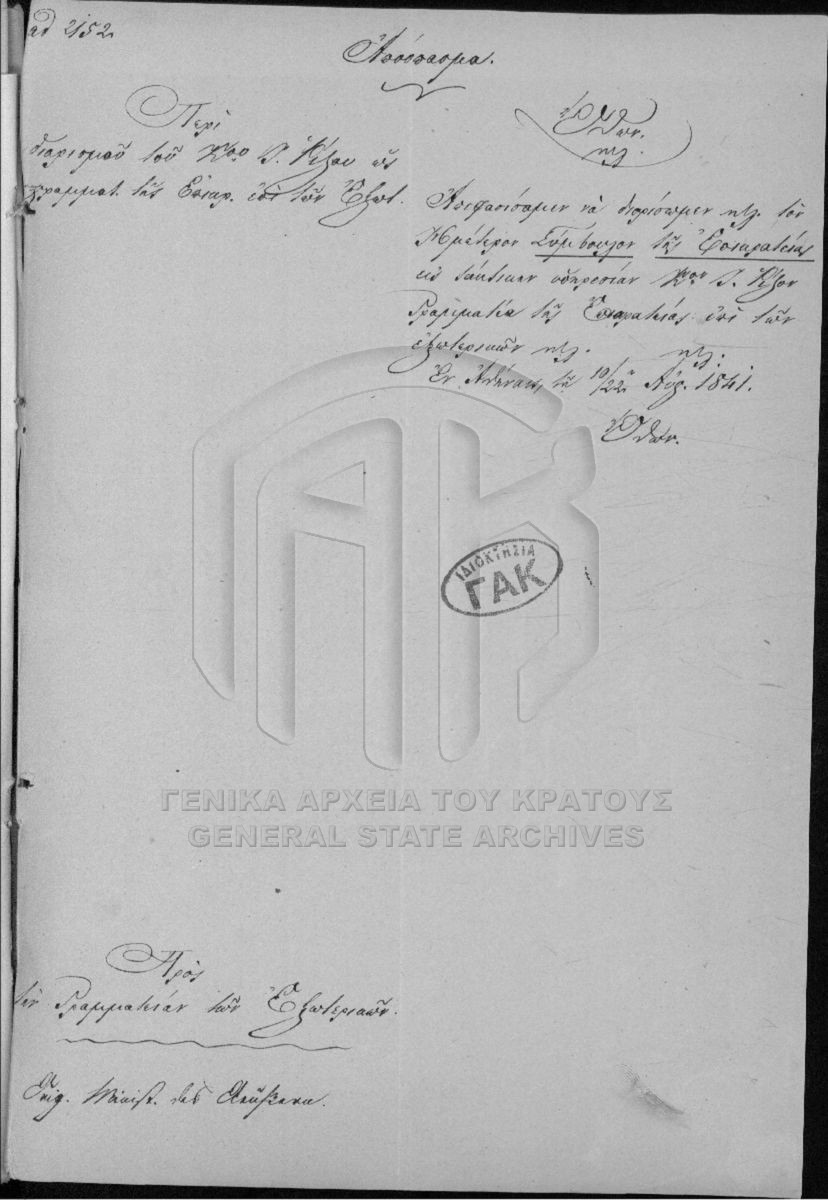 ad 2152
Ἀπόσπασμα.
Περὶ
διορισμοῦ τοῦ Κυρ. Ι. Ρίζου ὡς
γραμματ. τῆς Ἐπικρ. ἐπὶ τῶν Ἐξωτ.
Ὄθων.
κτλ.
Ἀπεφασίσαμεν νὰ διορίσωμεν κτλ. τὸν
Ἡμέτερον Σύμβουλον τῆς Ἐπικρατείας
εἰς τακτικὴν ὑπηρεσίαν Κύρ. Ι. Ρίζον
Γραμματέα τῆς Ἐπικρατείας ἐπὶ τῶν
ἐξωτερικῶν κτλ. κτλ.
Ἐν Ἀθήναις, τῇ 10/22 Αὐγ. 1841.
Ὄθων.
ΙΔΙΟΚΤΗΣΙΑ
ΓΑΚ
ΓΕΝΙΚΑ ΑΡΧΕΙΑ ΤΟΥ ΚΡΑΤΟΥΣ
GENERAL STATE ARCHIVES
Πρὸς
τὴν Γραμματείαν τῶν Ἐξωτερικῶν.
Orig. Minist. des Aeußern.